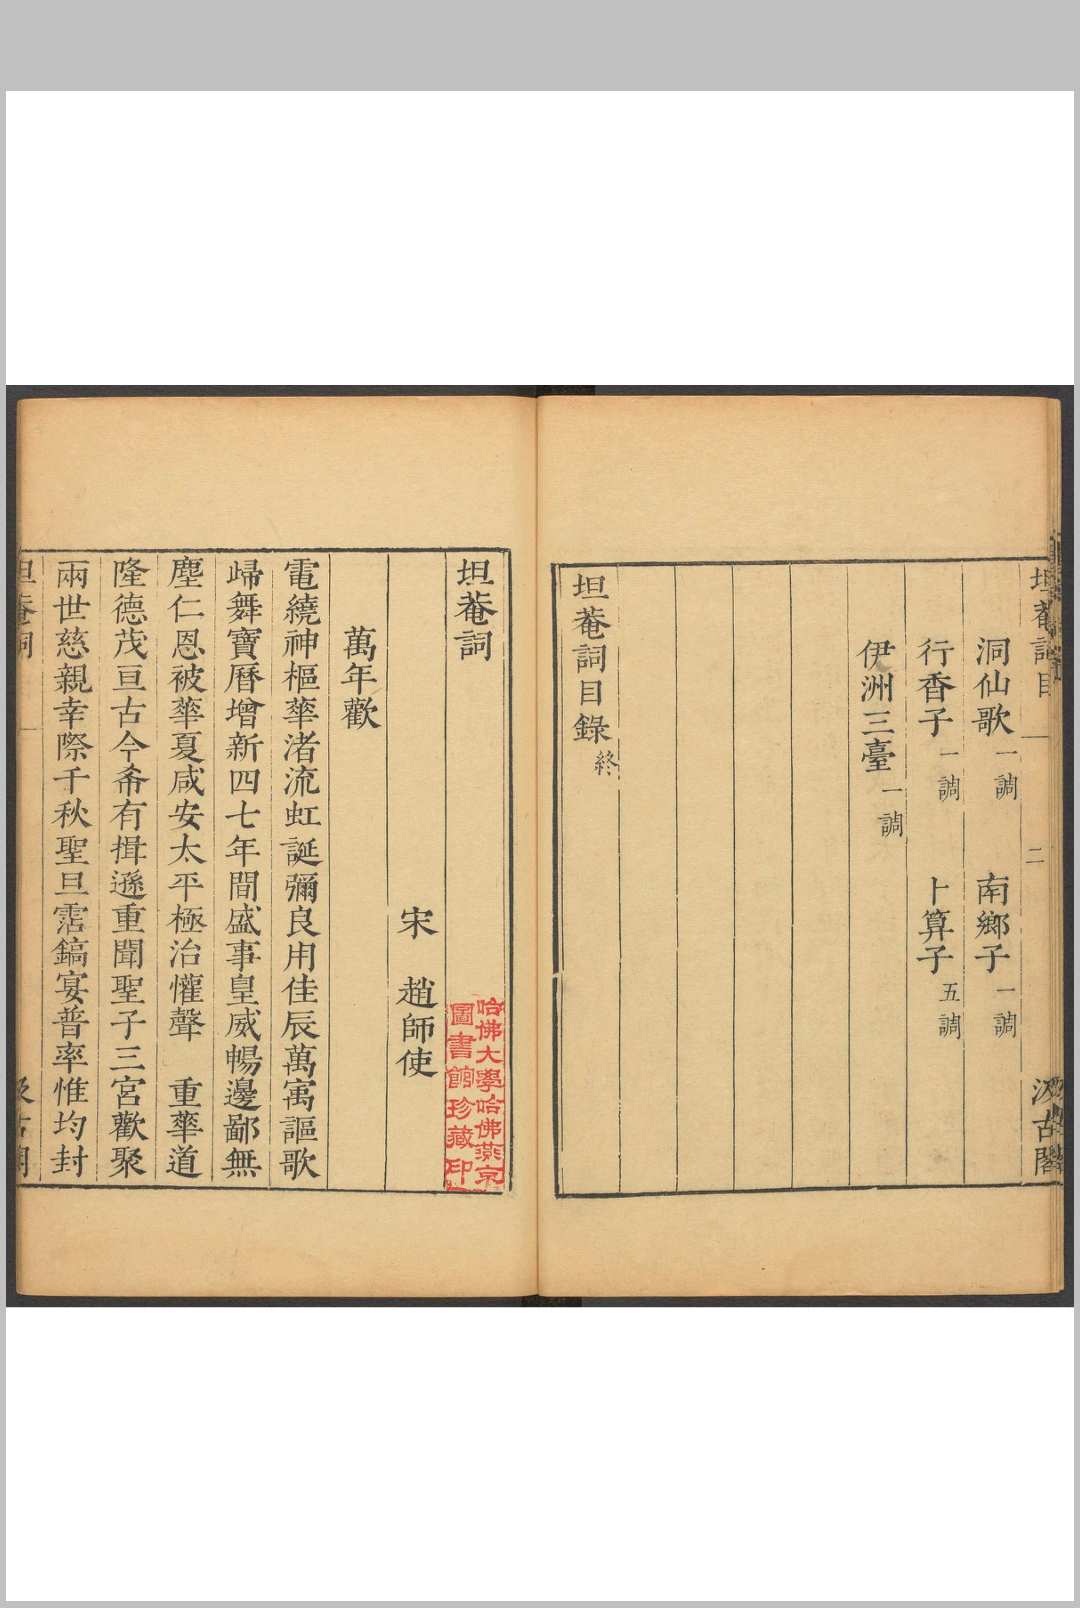 坦菴詞目
二
汲古閣
洞仙歌 一調 南鄉子 一調
行香子 一調 卜算子 五調
伊洲三臺 一調
坦菴詞目錄 終
坦菴詞
哈佛大學哈佛燕京
圖書館珍藏印
宋 趙師使
萬年歡
電繞神樞華渚流虹誕彌良用佳辰萬㝢謳歌
歸舞寶曆增新四七年間盛事皇威暢邊鄙無
塵仁恩被華夏咸安太平極治懽聲 重華道
隆德茂亘古今希有揖遜重聞聖子三宮歡聚
兩世慈親幸際千秋聖旦霑鎬宴普率惟均封
坦菴詞
一